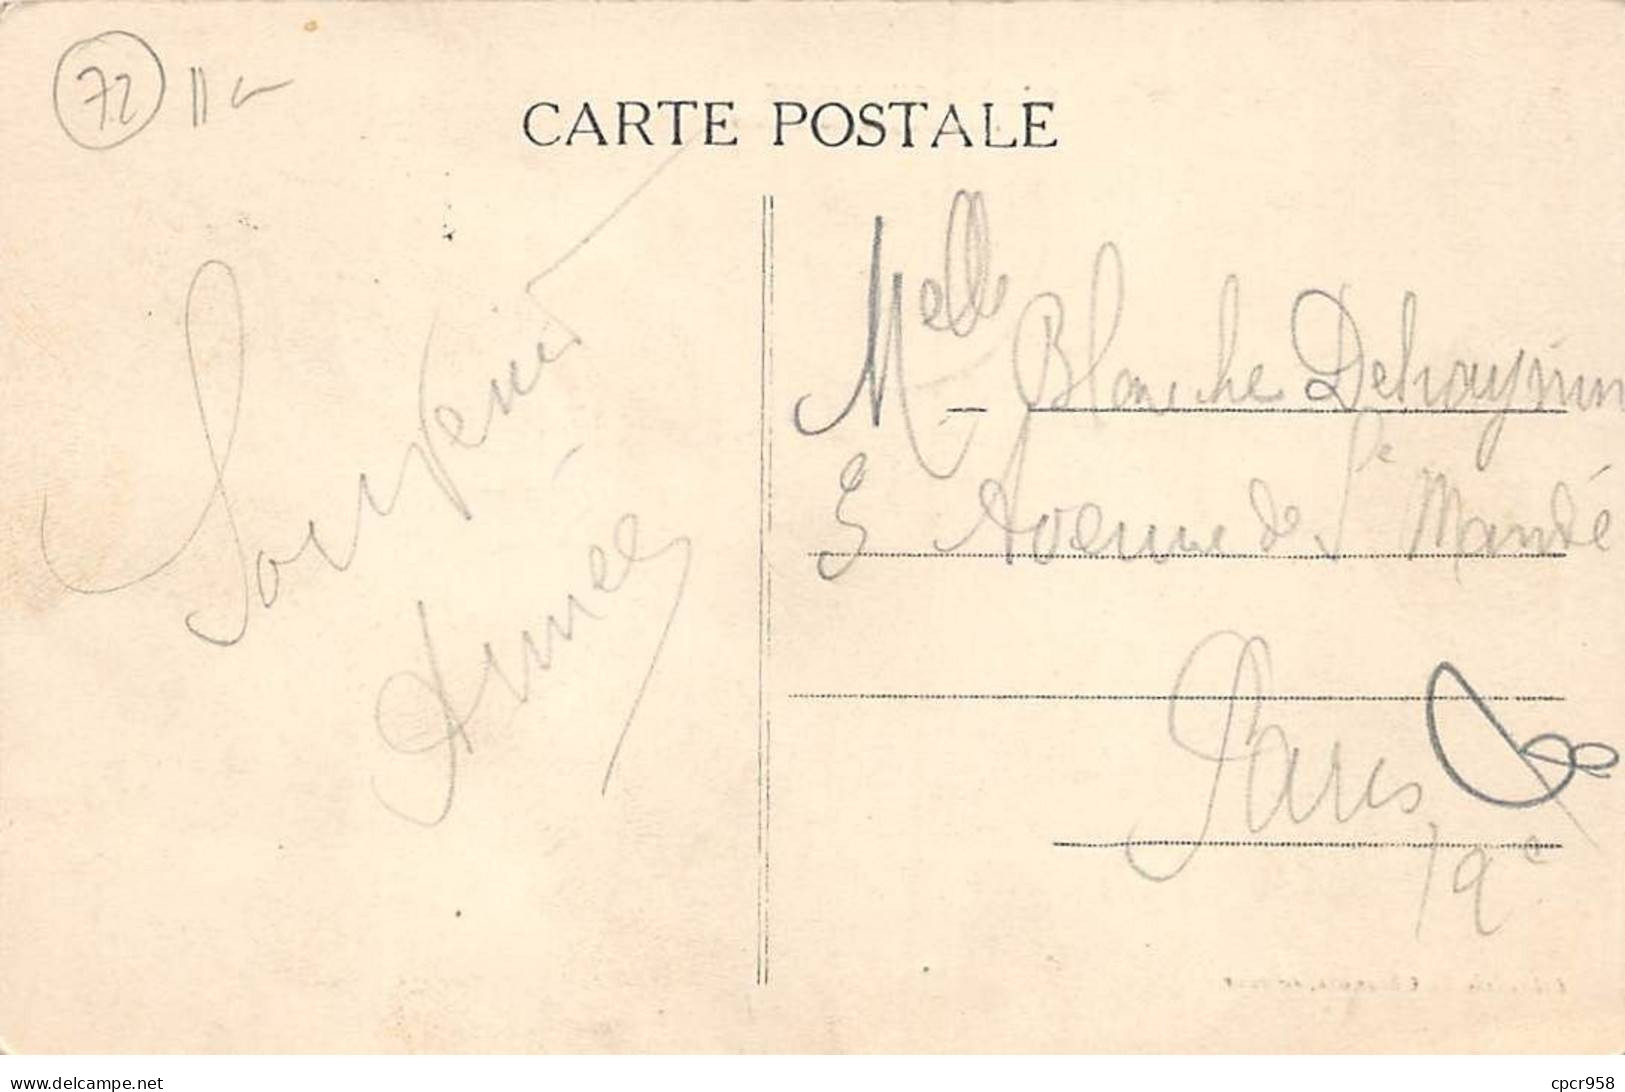 72
CARTE POSTALE
Souvenir
Aimée
Melle Blanche Dehaynin
3 Avenue de St Mandé
Paris
delcampe.net
cpcr958